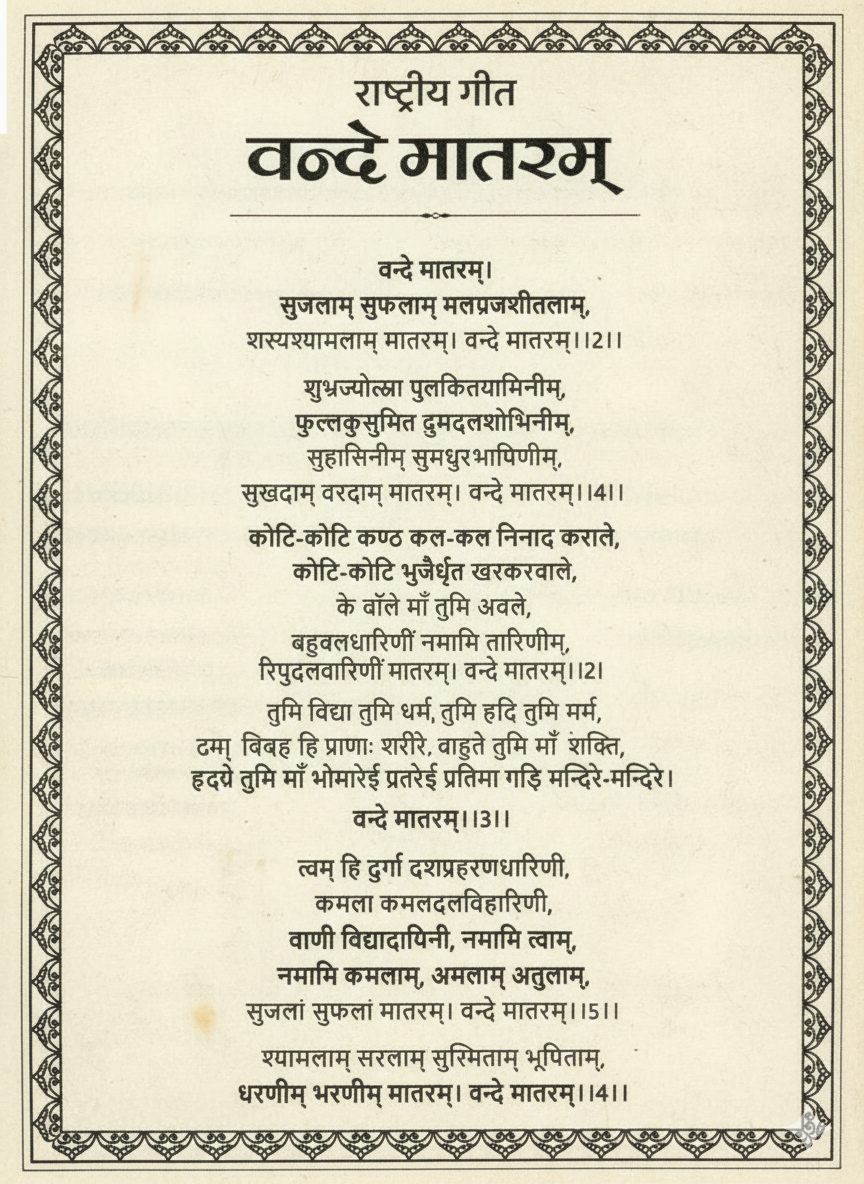 राष्ट्रीय गीत
वन्दे मातरम्
वन्दे मातरम्।
सुजलाम् सुफलाम् मलप्रजशीतलाम्,
शस्यश्यामलाम् मातरम्। वन्दे मातरम्।।2।।
शुभ्रज्योत्स्रा पुलकितयामिनीम्,
फुल्लकुसुमित दुमदलशोभिनीम्,
सुहासिनीम् सुमधुरभापिणीम्,
सुखदाम् वरदाम् मातरम्। वन्दे मातरम्।।4।।
कोटि-कोटि कण्ठ कल-कल निनाद कराले,
कोटि-कोटि भुजैर्धृत खरकरवाले,
के वॉले माँ तुमि अवले,
बहुवलधारिणीं नमामि तारिणीम्,
रिपुदलवारिणीं मातरम्। वन्दे मातरम्।।2।
तुमि विद्या तुमि धर्म, तुमि हदि तुमि मर्म,
ढम् विबह हि प्राणाः शरीरे, वाहुते तुमि माँ शक्ति,
हदये तुमि माँ भोमारेई प्रतरेई प्रतिमा गड़ि मन्दिरे-मन्दिरे।
वन्दे मातरम्।।3।।
त्वम् हि दुर्गा दशप्रहरणधारिणी,
कमला कमलदलविहारिणी,
वाणी विद्यादायिनी, नमामि त्वाम्,
नमामि कमलाम्, अमलाम् अतुलाम्,
सुजलां सुफलां मातरम्। वन्दे मातरम्।।5।।
श्यामलाम् सरलाम् सुरिमताम् भूपिताम्,
धरणीम् भरणीम् मातरम्। वन्दे मातरम्।।4।।